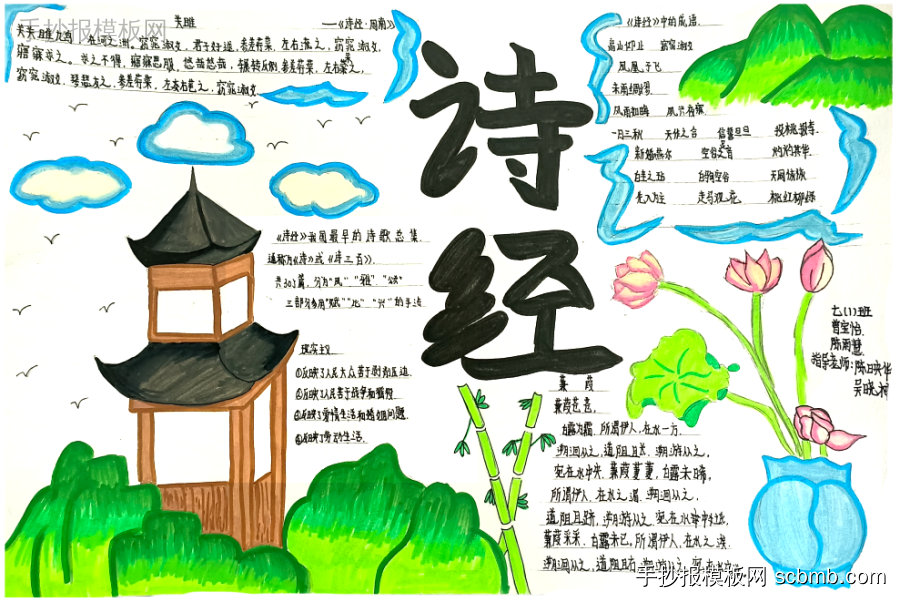 手抄报模板网
关雎 ——《诗经·周南》
关关雎鸠，在河之洲。窈窕淑女，君子好逑。参差荇菜，左右流之，窈窕淑女，
寤寐求之。求之不得，寤寐思服，悠哉悠哉，辗转反侧，参差荇菜，左右采之，
窈窕淑女，琴瑟友之，参差荇菜，左右芼之，窈窕淑女
诗经
《诗经》中的成语
高山仰止 窈窕淑女
凤凰于飞
未雨绸缪
风雨如晦
一日三秋 天作之合 信誓旦旦 投桃报李
新婚燕尔 空谷之音 灼灼其华
白圭之玷 白驹空谷 天网恢恢
先入为主 走马观花 桃红柳绿
《诗经》我国最早的诗歌总集
通称为《诗》或《诗三百》
共301篇，分为“风”“雅”“颂”
三部分多用“赋”“比”“兴”的手法
现实主义
①反映了人民大众苦于剥削压迫
②反映了人民苦于战争和徭役
③反映了爱情生活和婚姻问题
④反映了劳动生活
七(1)班
曹宝怡
陈雨慧
指导老师：
蒹葭
蒹葭苍苍，
白露为霜，所谓伊人，在水一方，
溯洄从之，道阻且长，溯游从之，
宛在水中央，蒹葭萋萋，白露未晞，
所谓伊人，在水之湄，溯洄从之，
道阻且跻，溯游从之，宛在水中坻
蒹葭采采，白露未已，所谓伊人，在水之涘
溯洄从之，道阻且右，溯游从之，宛在水
手抄报模板网 scbmb.com